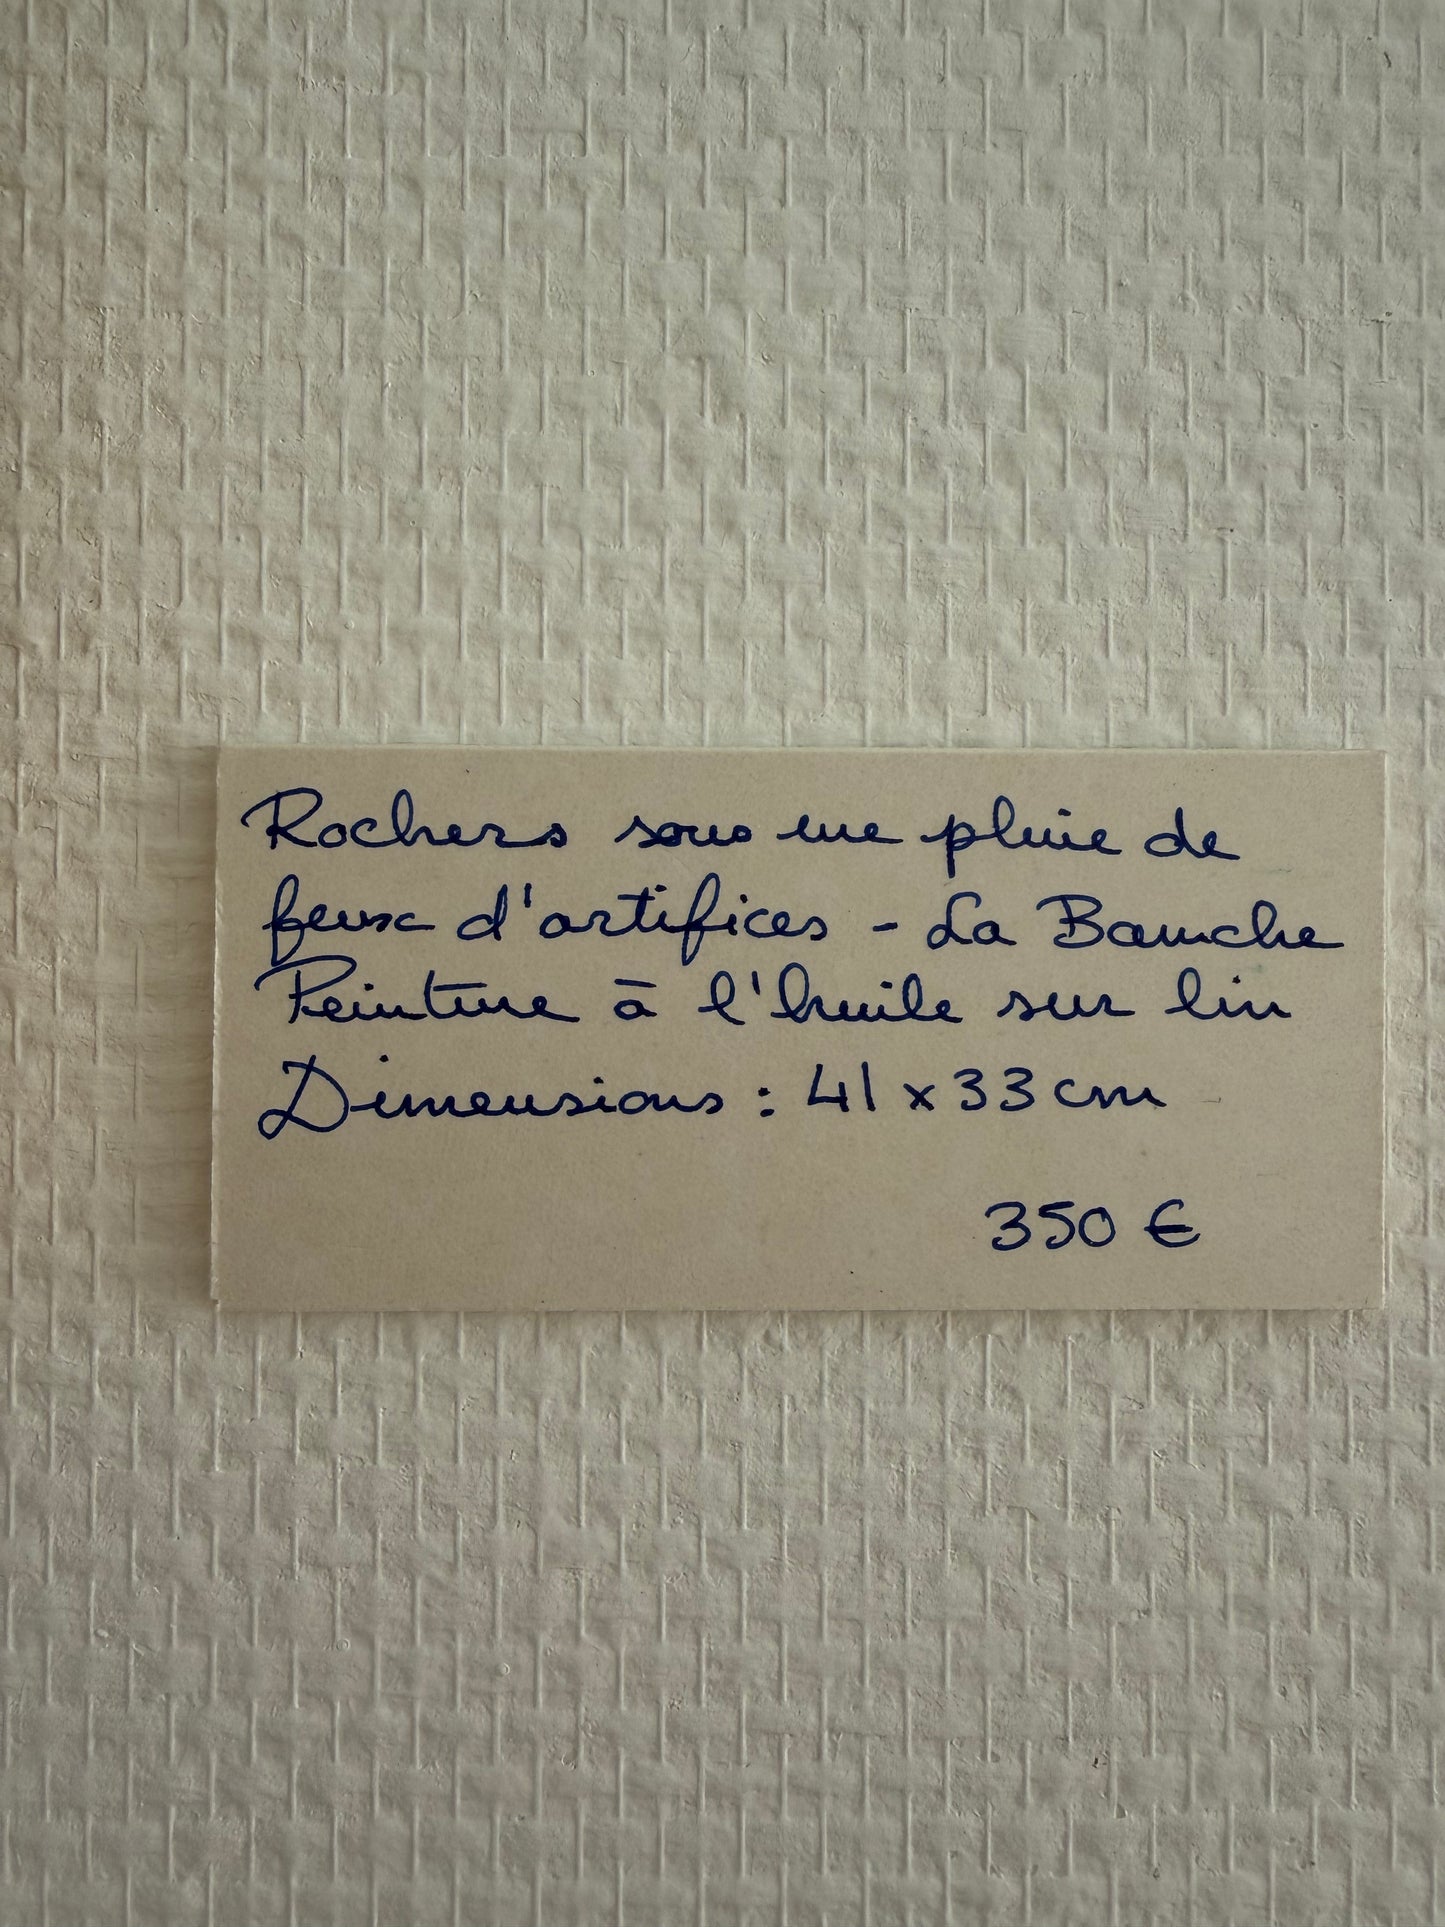 Rochers sous une pluie de
feux d'artifices - La Bauche
Peinture à l'huile sur lin
Dimensions : 41 x 33 cm
350 €